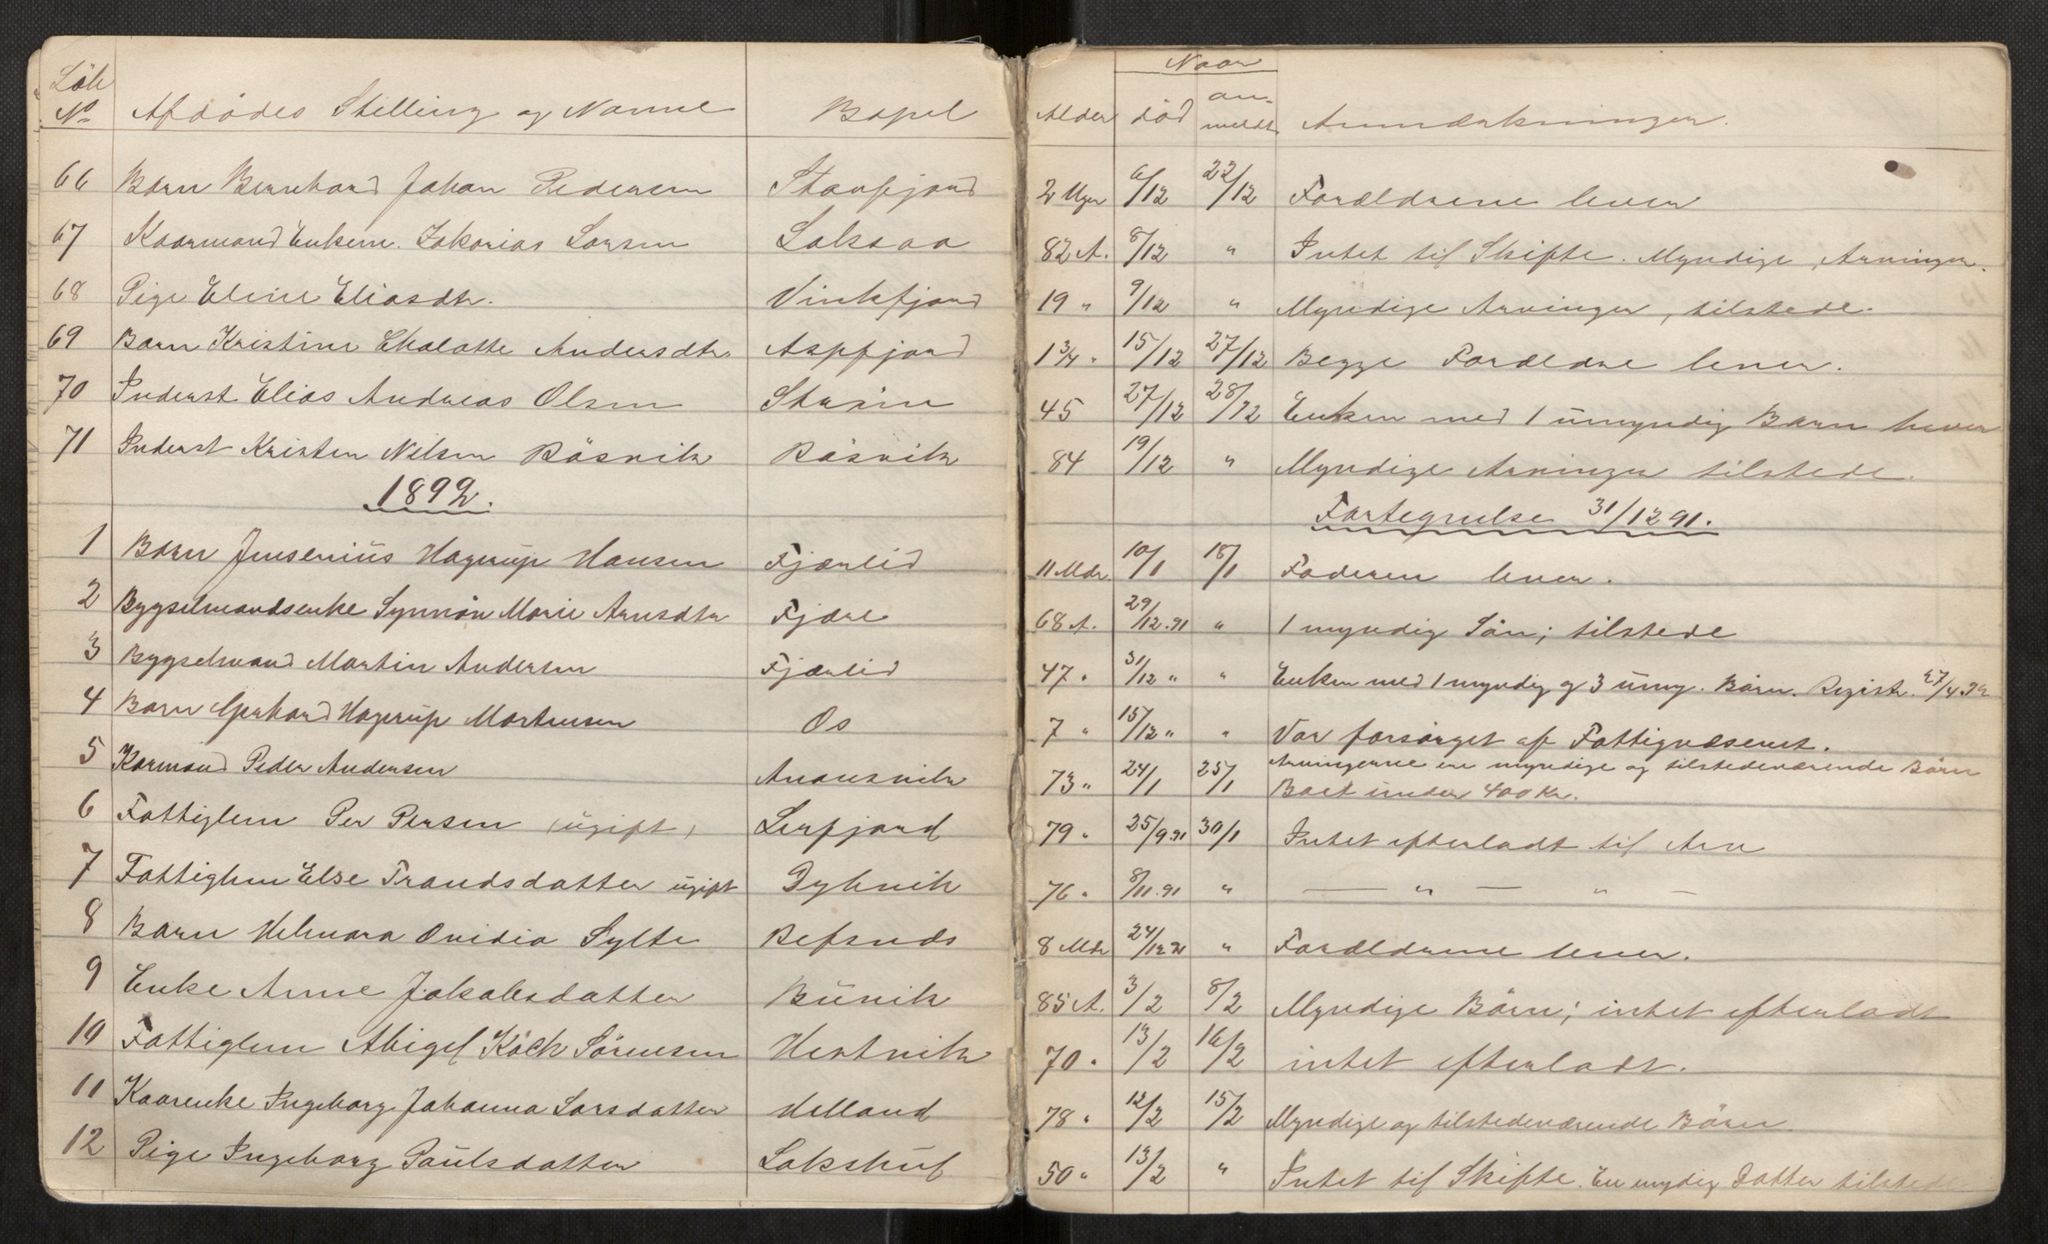 Löb No | Afdödes Stilling og Navne | Bopel | Alder | Naar död | anmeldt | Anmærkninger.
66 | Barn Bernhard Johan Pedersen | Stavfjord | 2 Uger | 6/12 | 22/12 | Forældrene lever
67 | Kaarmand Enkem. Zakarias Larsen | Laksaa | 82 A. | 8/12 | " | Intet til Skifte. Myndige Arvinger.
68 | Pige Eline Eliasdtr. | Vinkfjord | 19 " | 9/12 | " | Myndige Arvinger, tilstede.
69 | Barn Kristine Chalotte Andersdtr. | Aspfjord | 1 3/4 " | 15/12 | 27/12 | Begge Forældre lever.
70 | Inderst Elias Andreas Olsen | | 45 | 27/12 | 28/12 | Enken med 1 umyndig Barn lever
71 | Inderst Kristen Nilsen Bösvik | Bösvik | 84 | 19/12 | " | Myndige Arvinger tilstede.
1892. | Fortegnelse 31/12 91.
1 | Barn Jensenius Hagerup Hansen | Fjærlid | 11 Mdr. | 10/1 | 18/1 | Faderen lever.
2 | Bygselmandsenke Synnön Marie Arnsdtr | Fjære | 68 A. | 29/12.91 | " | 1 myndig Sön; tilstede
3 | Bygselmand Martin Andersen | Fjærlid | 47 " | 31/12 " | " | Enken med 1 myndig og 3 umy. Börn. Registr. 27/4.92
4 | Barn Gerhard Hagerup Mortensen | Os | 7 " | 15/12 " | " | Var forsörget af Fattigvæsenet.
5 | Karmand Peder Andersen | Anansvik | 73 " | 24/1 | 25/1 | Arvingerne ere myndige og tilstedeværende Börn
Boet under 400 Kr.
6 | Fattiglem Per Persen (ugift) | Lerfjord | 79 " | 25/9.91 | 30/1 | Intet efterladt til Arv
7 | Fattiglem Else Trandsdatter ugift | Dybvik | 76 " | 8/11.91 | " | — " — " —
8 | Barn Helmara Ovidia Sylte | Refsnds | 8 Mdr | 24/12.91 | " | Forældrene lever.
9 | Enke Anne Jakobsdatter | Buvik | 85 A. | 3/2 | 8/2 | Myndige Börn; intet efterladt
10 | Fattiglem Abigel Köch Sörensen | Hestvik | 70 " | 13/2 | 16/2 | intet efterladt.
11 | Kaarenke Ingeborg Johanna Larsdatter | Helland | 78 " | 12/2 | 15/2 | Myndige og tilstedeværende Börn.
12 | Pige Ingeborg Paulsdatter | Lakshul | 50 " | 13/2 | " | Intet til Skifte. En mydig Datter tilstede